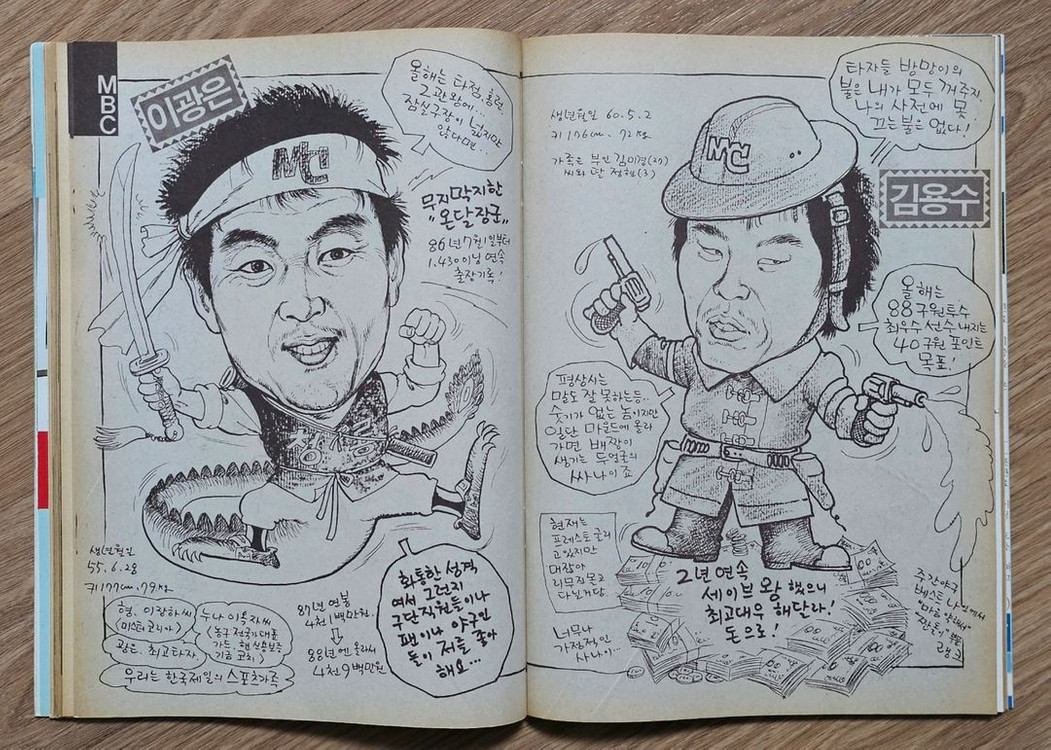 MBC
이광은
MBC
올해는 타점, 홈런
2관왕에...
잠실구장이 넓지만
않다면...
무지막지한
"온달장군"
86년 7월 1일부터
1,430이닝 연속
출장기록!
생년월일
55. 6. 28
키 177cm, 79kg
형, 이장하씨
(미스터코리아)
누나 이옥자씨
(농구 전국가대표
가드, 現 신용보증
기금 코치)
광은. 최고타자.
우리는 한국제일의 스포츠가족
87년 연봉
4천1백만원.
88년엔 올라서
4천9백만원
화통한 성격
여서 그런지
구단직원들이나
팬이나 야구인
들이 저를 좋아
해요...
생년월일 60. 5. 2
키 176cm, 72kg
가족은 부인 김미경(27)
씨와 딸
타자들 방망이의
불은 내가 모두 꺼주지.
나의 사전에 못
끄는 불은 없다!
MBC
김용수
올해는
88구원투수
최우수선수 내지는
40구원 포인트
목표!
평상시는
말도 잘 못하는등..
숫기가 없는 놈이지만
일단 마운드에 올라
가면 배짱이
생기는 두얼굴의
싸나이죠
현재는
프레스토 굴리
고있지만
너무나
가정적인
사나이...
2년 연속
세이브 왕 했으니
최고대우 해달라!
돈으로!
주간야구
베스트 나인에서